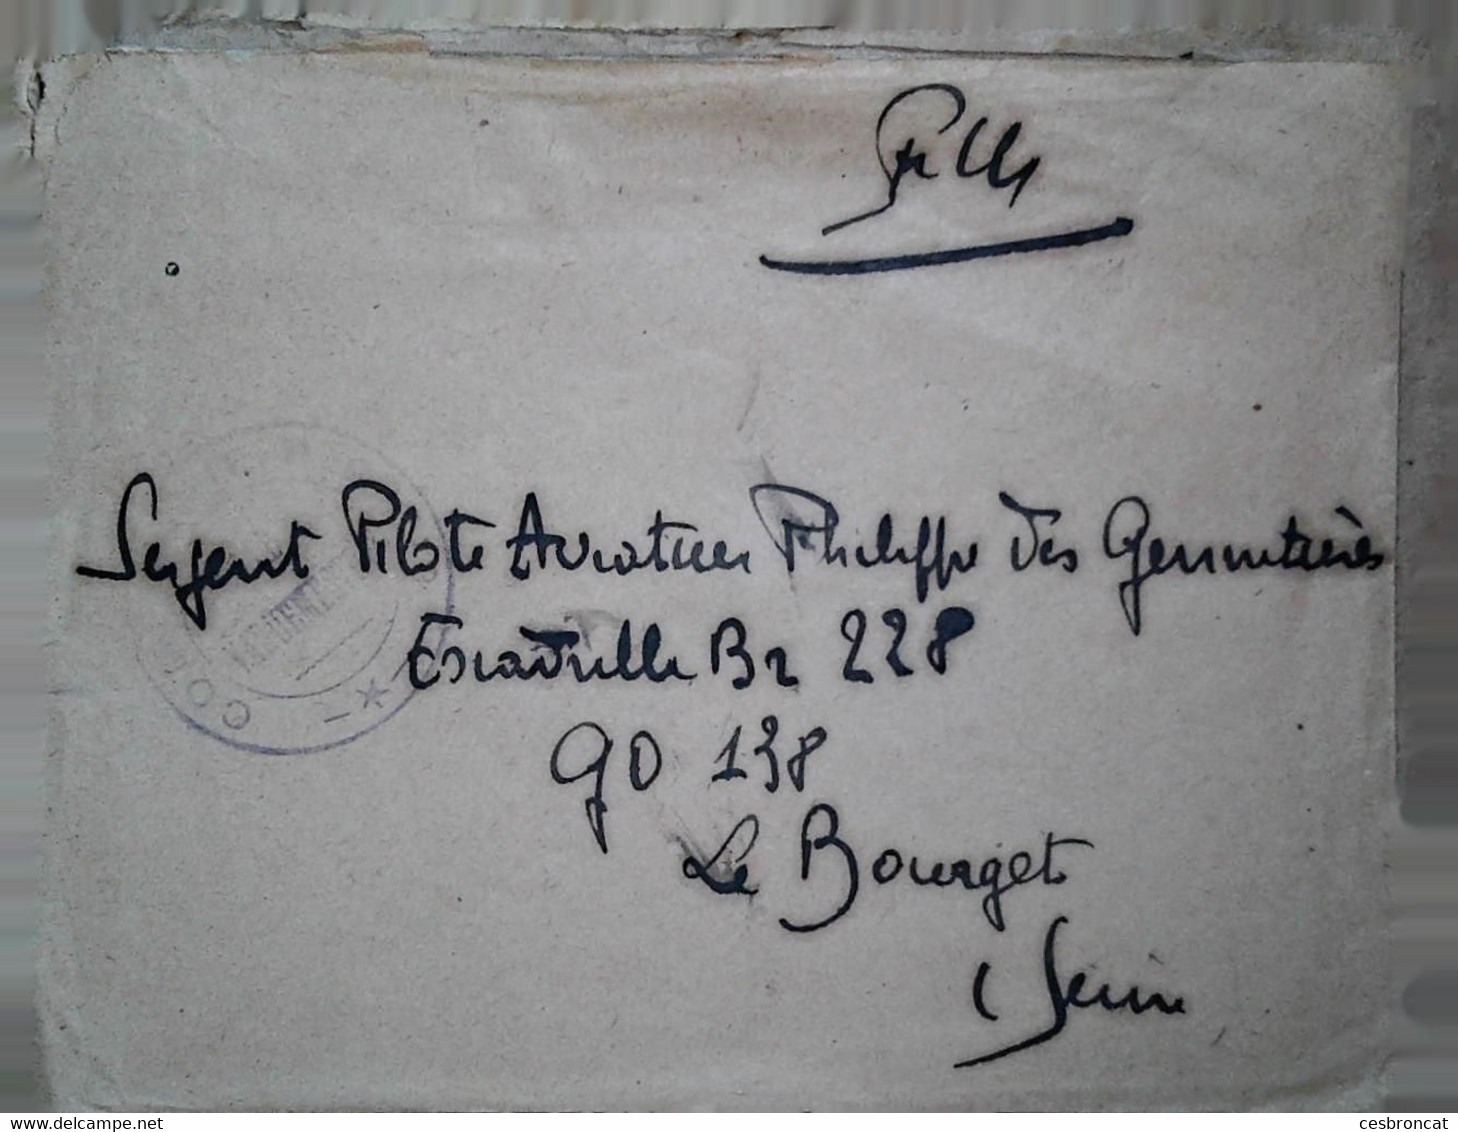 Sergent Pilote Aviateur Philippe des Germinières
Escadrille Br 228
GO 138
Le Bourget
(Seine
www.delcampe.net
cesbroncat